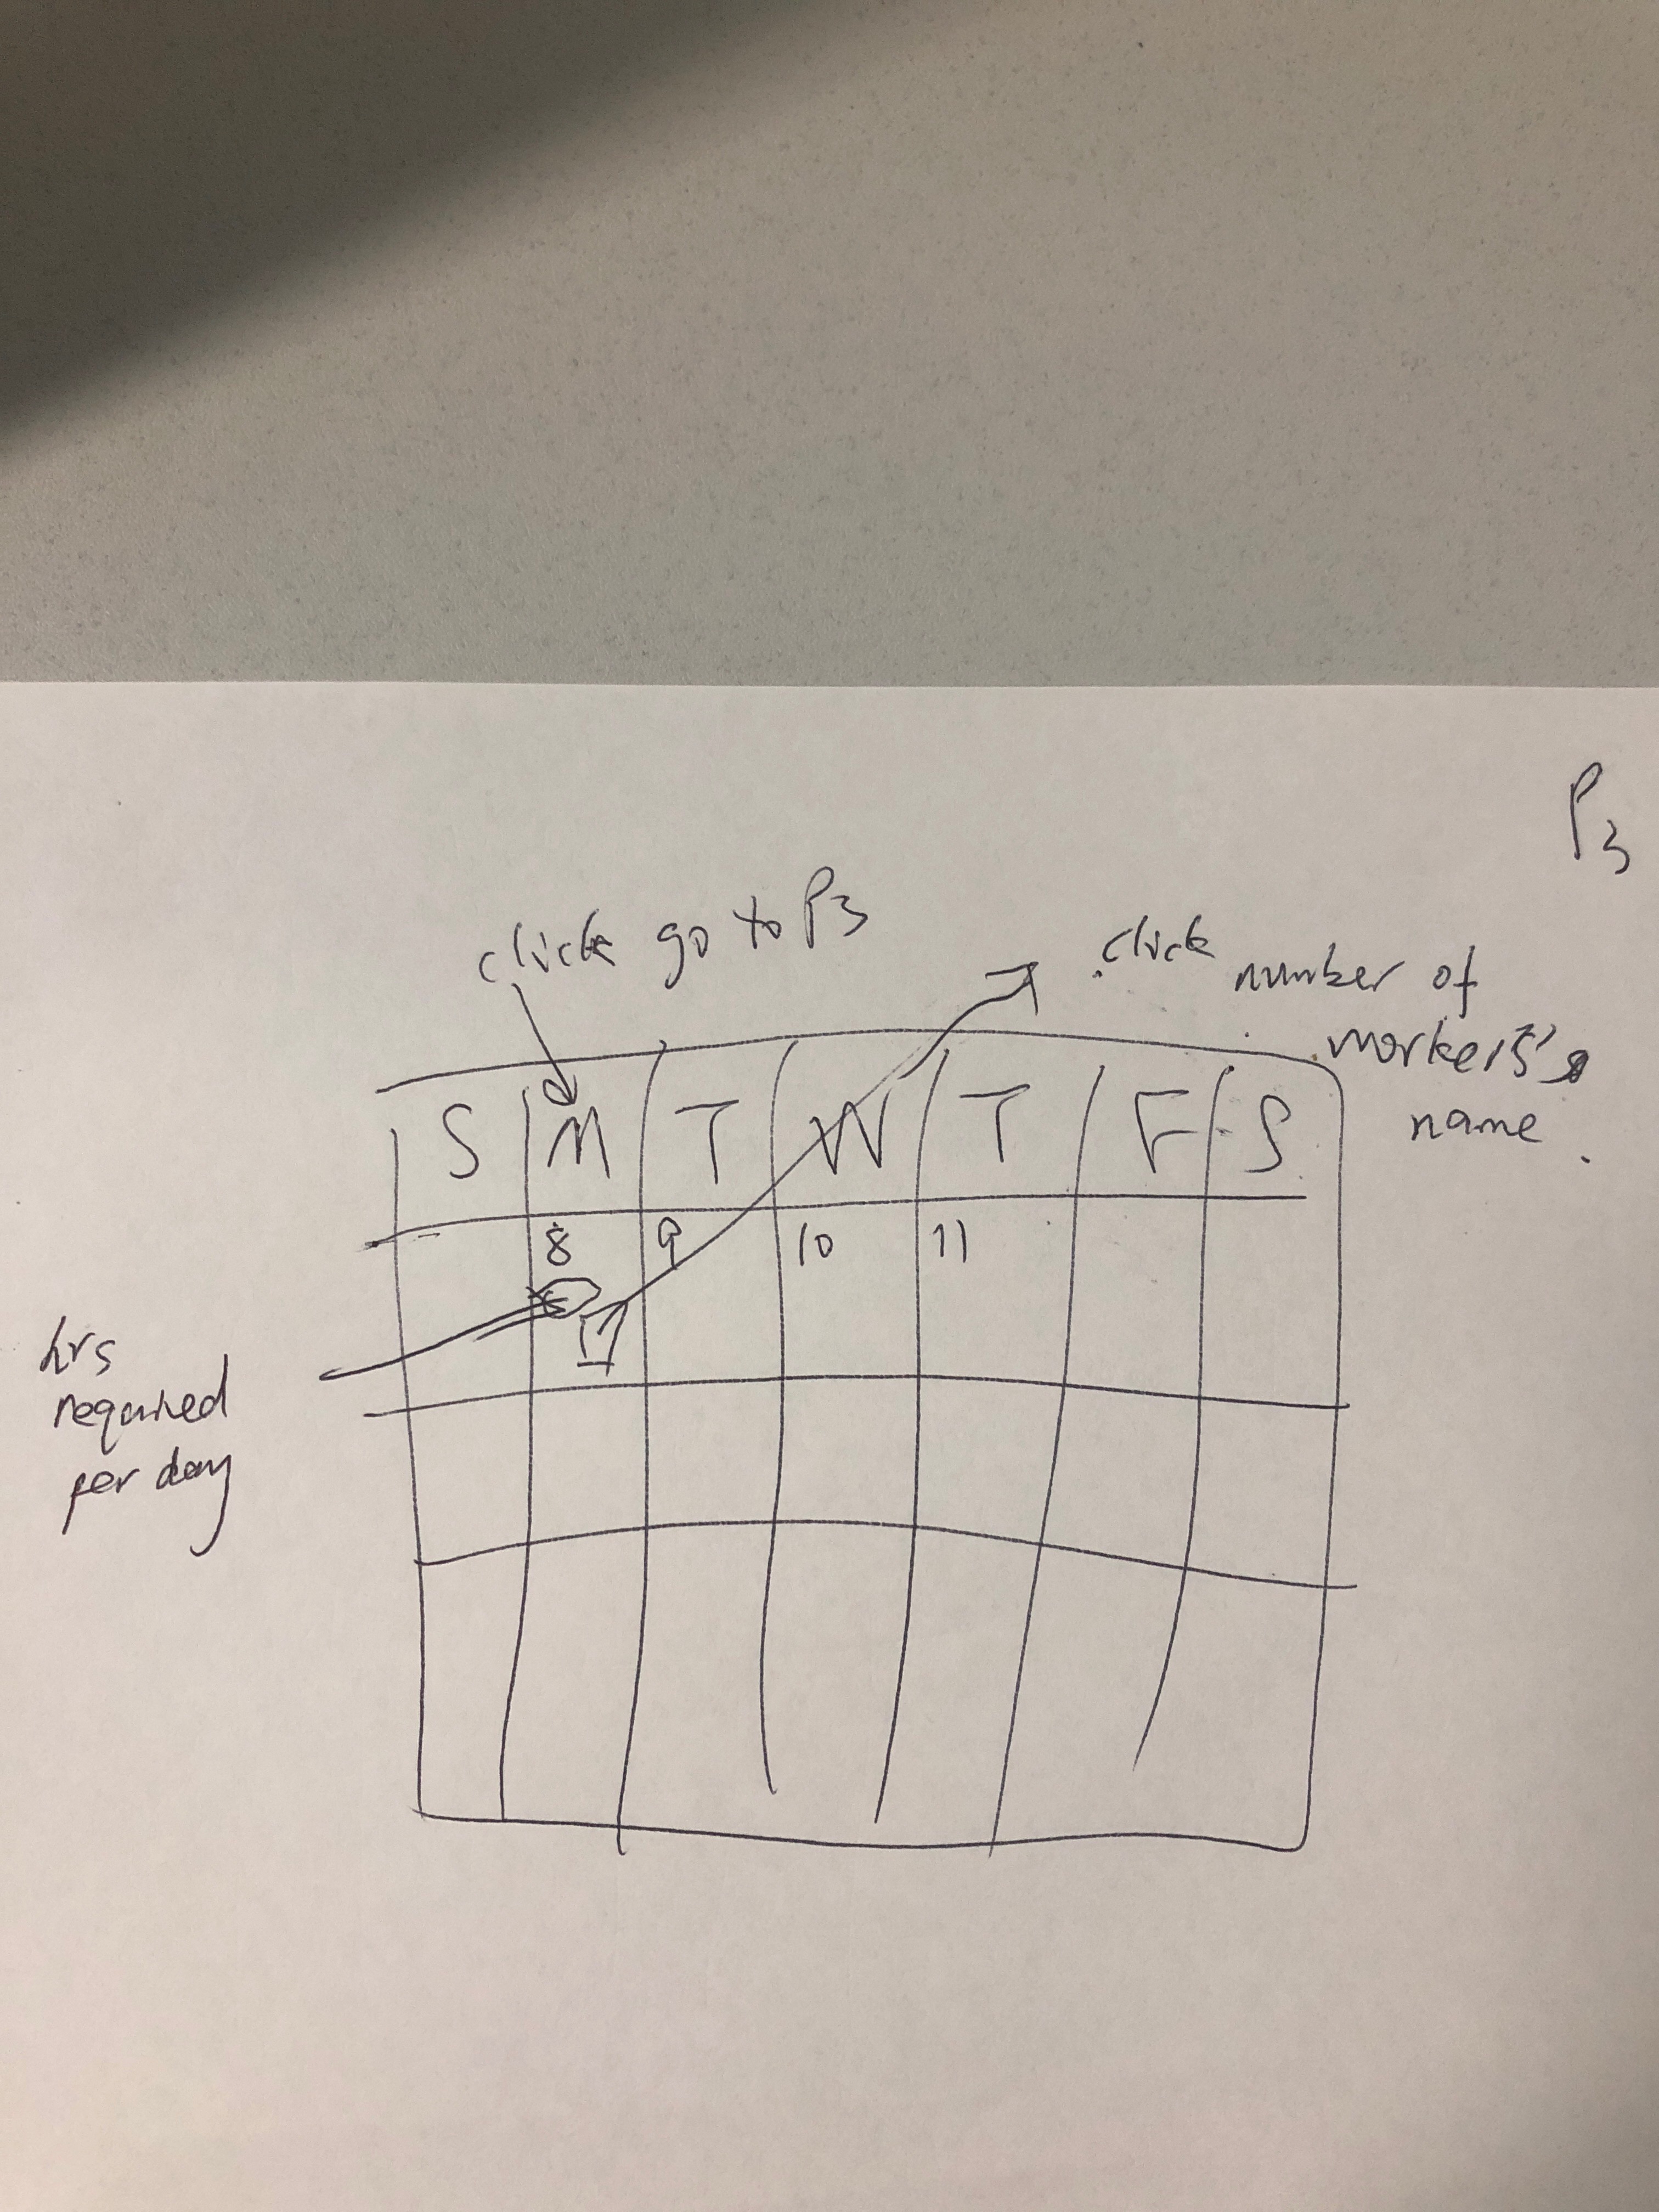 P3
click go to P3
click number of
workers's
name.
S M T W T F S
8 9 10 11
hrs
required
per day